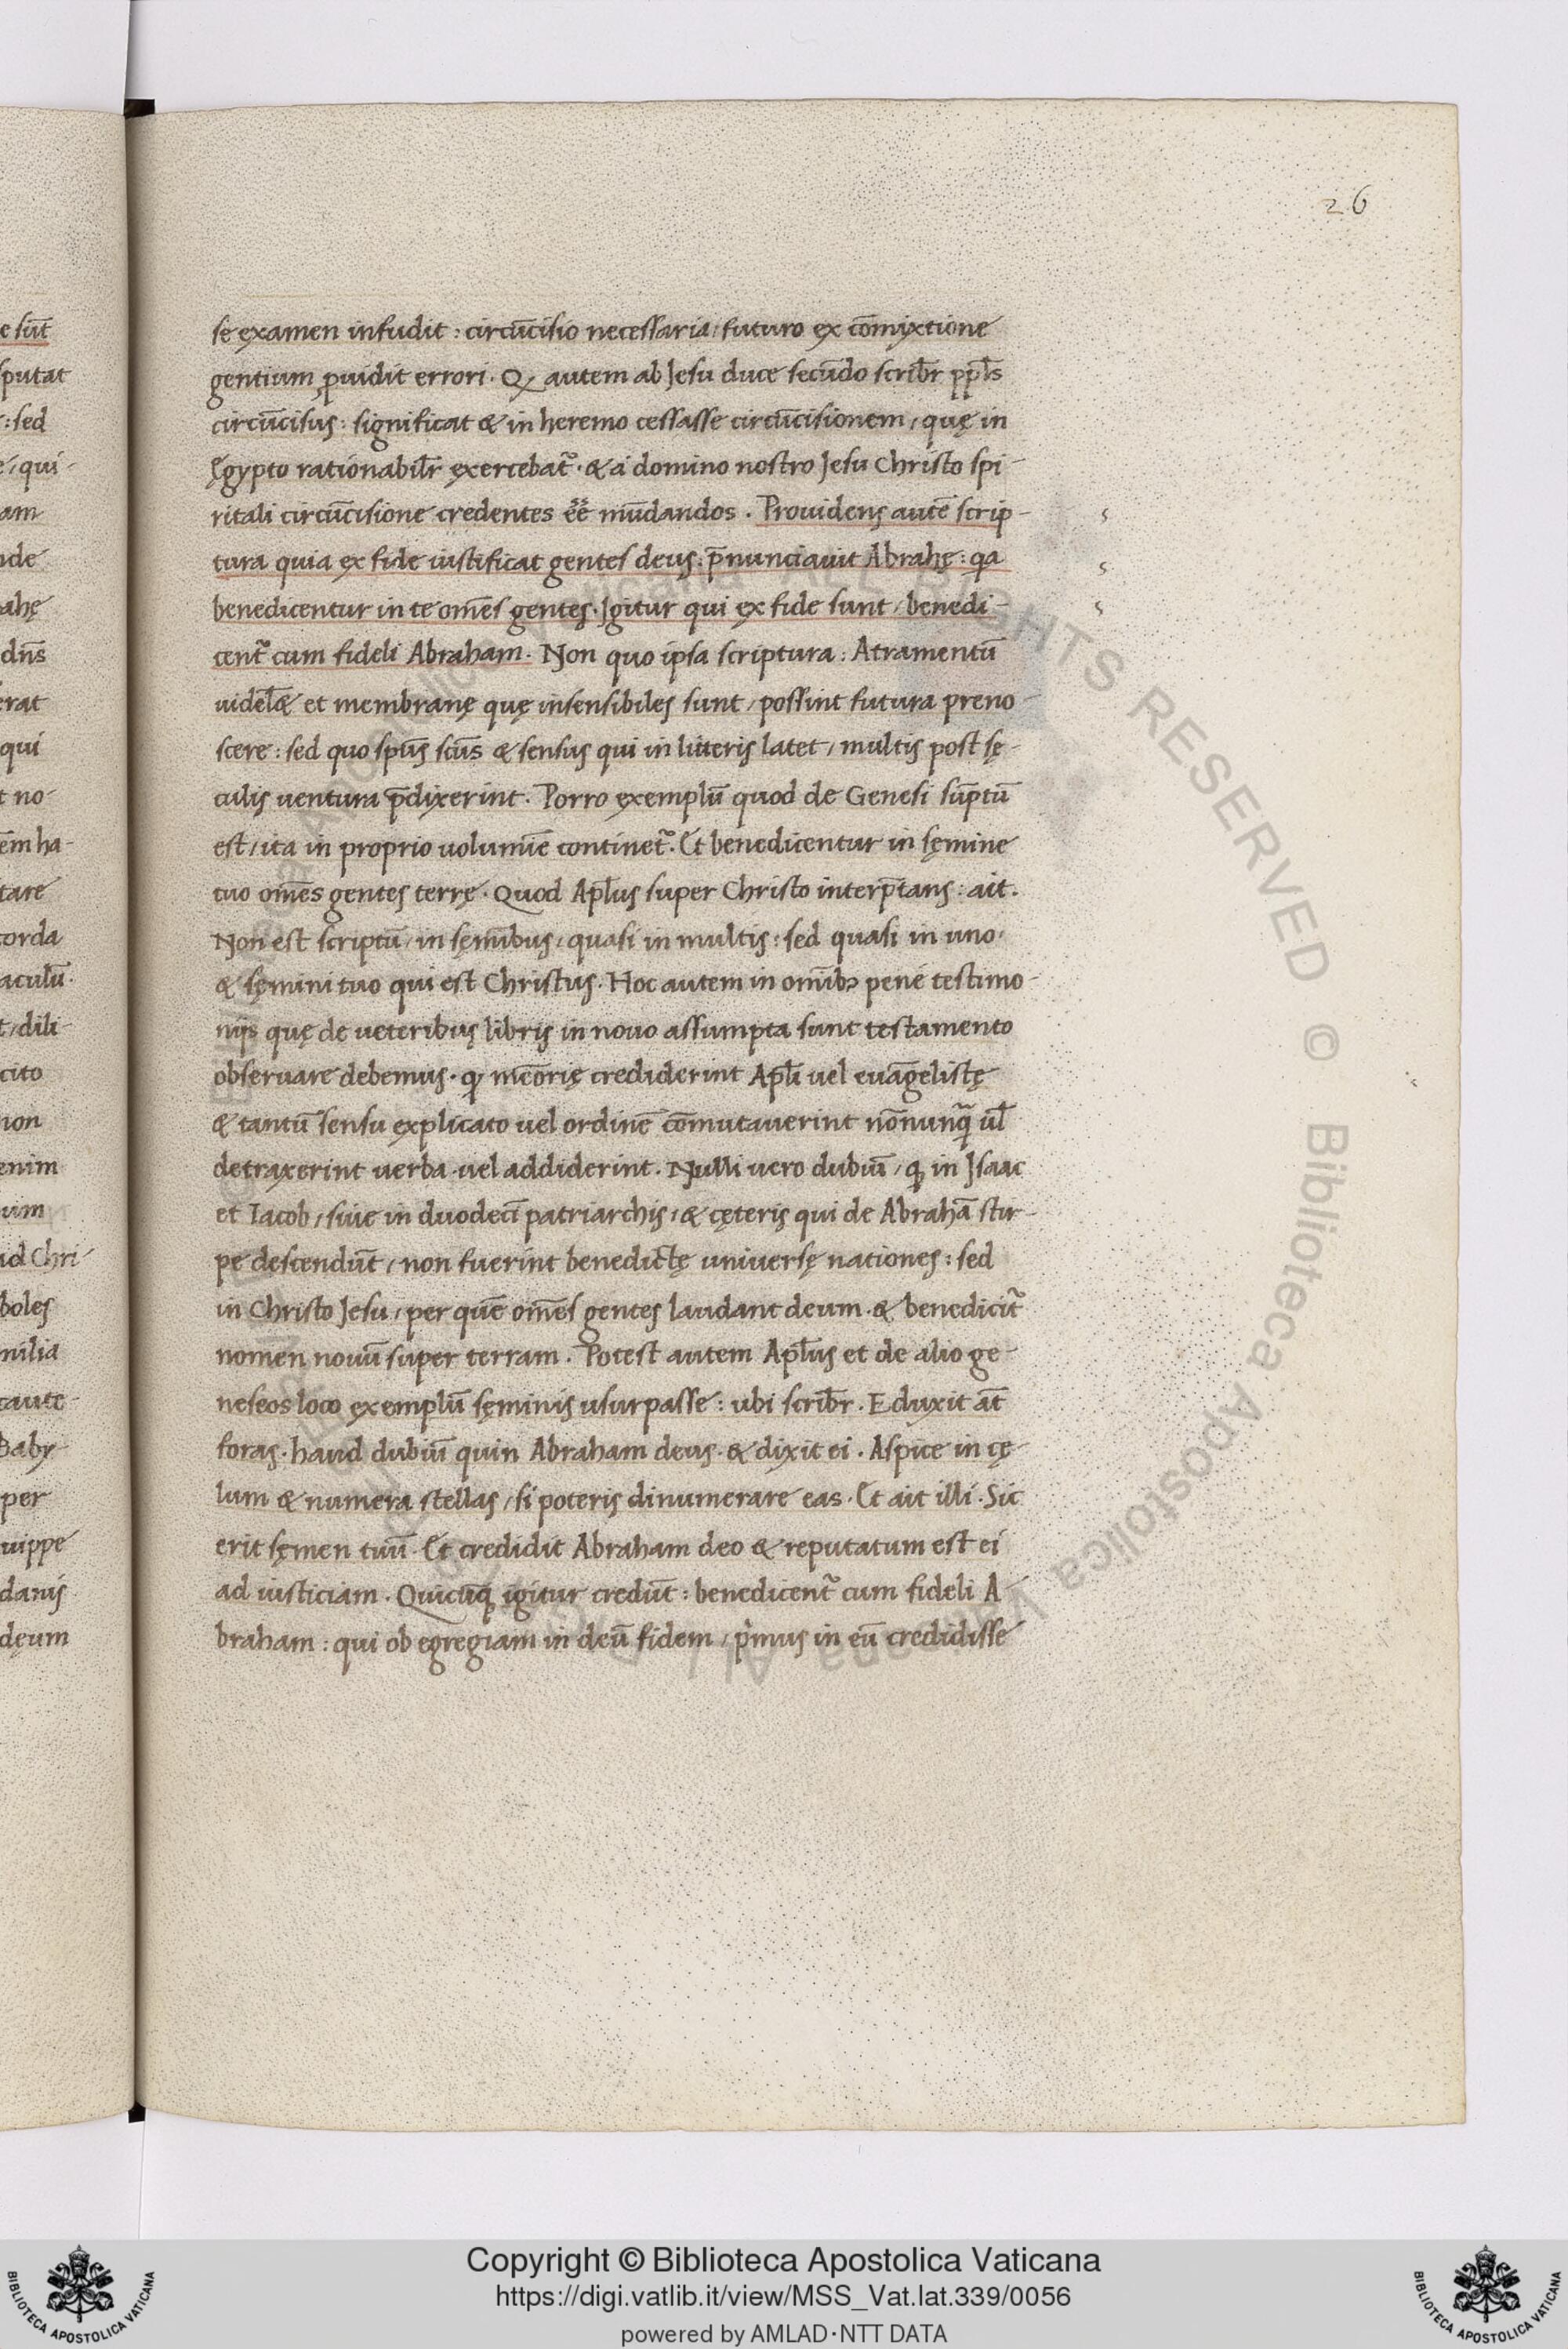 26
e sūt
sputat
: sed
e, qui-
am
nde
ahę
dn̄s
erat
qui
t no-
ēm ha-
tare
corda
aculū.
t, dili-
cito
non
enim
uim
ad Chri
boles
milia
caute-
Baby-
per
uippe
danis
dęum
se examen infudit : circūcisio necessaria, futuro ex cōmixtione
gentium ꝓuidit errori. Qꝫ autem ab Jesu duce secūdo scribr̄ ppl̄s
circūcisus : significat & in heremo cessasse circūcisionem, quę in
Ęgypto rationabilr̄ exercebat᷑. & a domino nostro Jesu Christo spi-
ritali circūcisione credentes ēē mūdandos. Prouidens autē scrip-
tura quia ex fide iustificat gentes deus : p̄nunciauit Abrahę : qa
benedicentur in te om̄es gentes. Igitur qui ex fide sunt, benedi-
cent᷑ cum fideli Abraham. Non quo ipsa scriptura : Atramentū
uidel& et membranę quę insensibiles sunt, possint futura preno-
scere : sed quo sp̄us sc̄us & sensus qui in litteris latet, multis post sę-
culis uentura p̄dixerint. Porro exemplū quod de Genesi sūptū
est, ita in proprio uolumīe continet᷑. Et benedicentur in sęmine
tuo om̄es gentes terrę. Quod Apl̄us super Christo interp̄tans : ait.
Non est scriptū, in sęmībus, quasi in multis : sed quasi in uno.
& sęmini tuo qui est Christus. Hoc autem in omībꝫ pene testimo-
nijs quę de ueteribus libris in nouo assumpta sunt testamento
obseruare debemus. qꝫ mēorię crediderint Apl̄i vel euāgelistę
& tantū sensu explicato uel ordinē cōmutauerint nōnunq̄ ul̄
detraxerint uerba uel addiderint. Nulli uero dubiū, qꝫ in Isaac
et Iacob, siue in duodecī patriarchis, & cęteris qui de Abrahā stir-
pe descendūt, non fuerint benedictę uniuersę nationes : sed
in Christo Jesu, per quē om̄es gentes laudant deum. & benedicit᷑
nomen nouū super terram. Potest autem Apl̄us et de alio ge-
neseos loco exemplū sęminis usurpasse : ubi scribr̄. Eduxit āt
foras. haud dubiū quin Abraham deus. & dixit ei. Aspice in cę-
lum & numera stellas, si poteris dinumerare eas. Et ait illi. Sic
erit sęmen tuū. Et credidit Abraham deo & reputatum est ei
ad iusticiam. Quicūqꝫ igitur credūt : benedicent᷑ cum fideli A-
braham : qui ob egregiam in deū fidem, pͥmus in eū credidisse
Copyright © Biblioteca Apostolica Vaticana
https://digi.vatlib.it/view/MSS_Vat.lat.339/0056
powered by AMLAD·NTT DATA
BIBLIOTECA APOSTOLICA VATICANA
BIBLIOTECA APOSTOLICA VATICANA